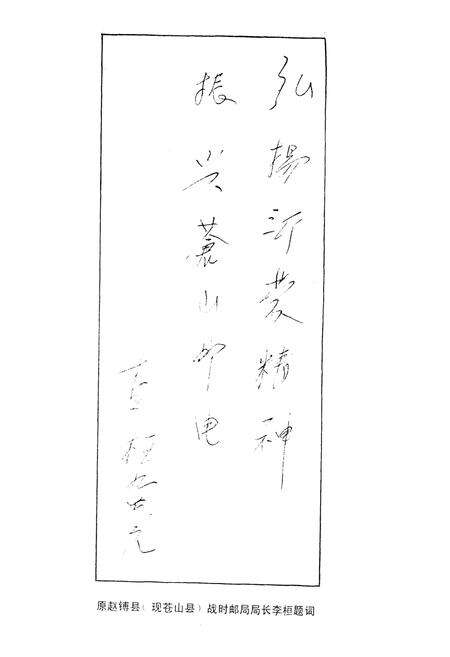 弘揚沂蒙精神
振兴蒼山邮电
李桓
原赵镈县（现苍山县）战时邮局局长李桓题词